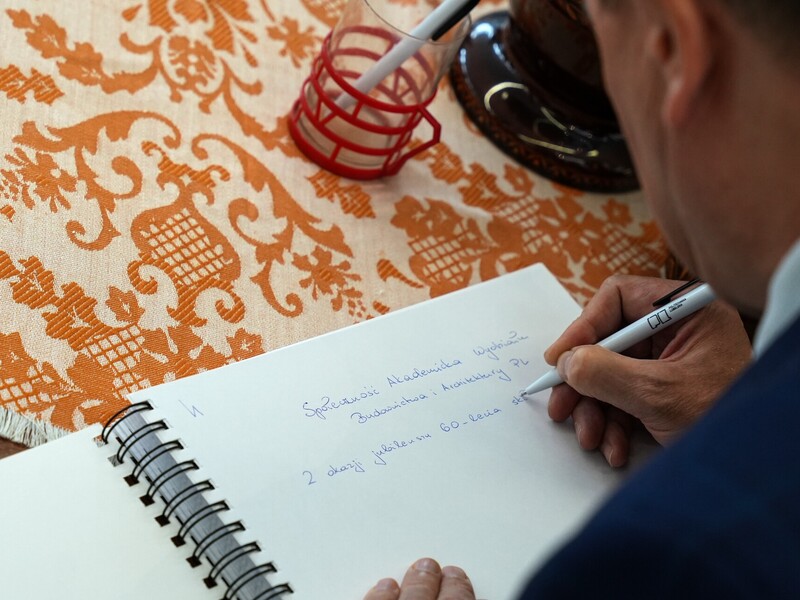 Społeczność Akademicka Wydziału
Budownictwa i Architektury PL
Z okazji jubileuszu 60-lecia skł